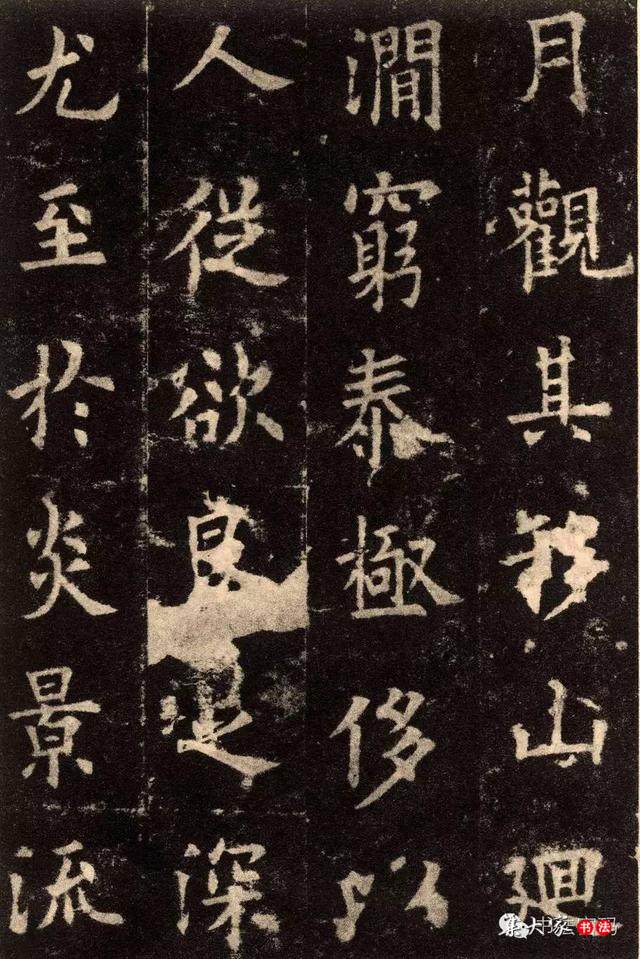 月觀其移山廻
澗窮泰極侈以
人從欲良足深
尤至於炎景流
大家书法